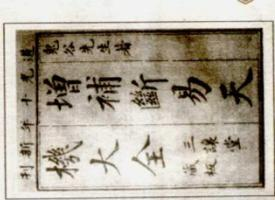 道光十年新刊
鬼谷先生著
增補斷易天
機大全
三讓堂
藏板